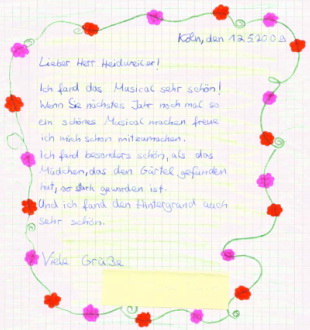 Köln, den 12.5.2009
Lieber Herr Heidweiler!
Ich fand das Musical sehr schön!
Wenn Sie nächstes Jahr noch mal so
ein schönes Musical machen freue
ich mich schon mitzumachen.
Ich fand besonders schön, als das
Mädchen, das den Gürtel gefunden
hat, so stark geworden ist.
Und ich fand den Hintergrund auch
sehr schön.
Viele Grüße